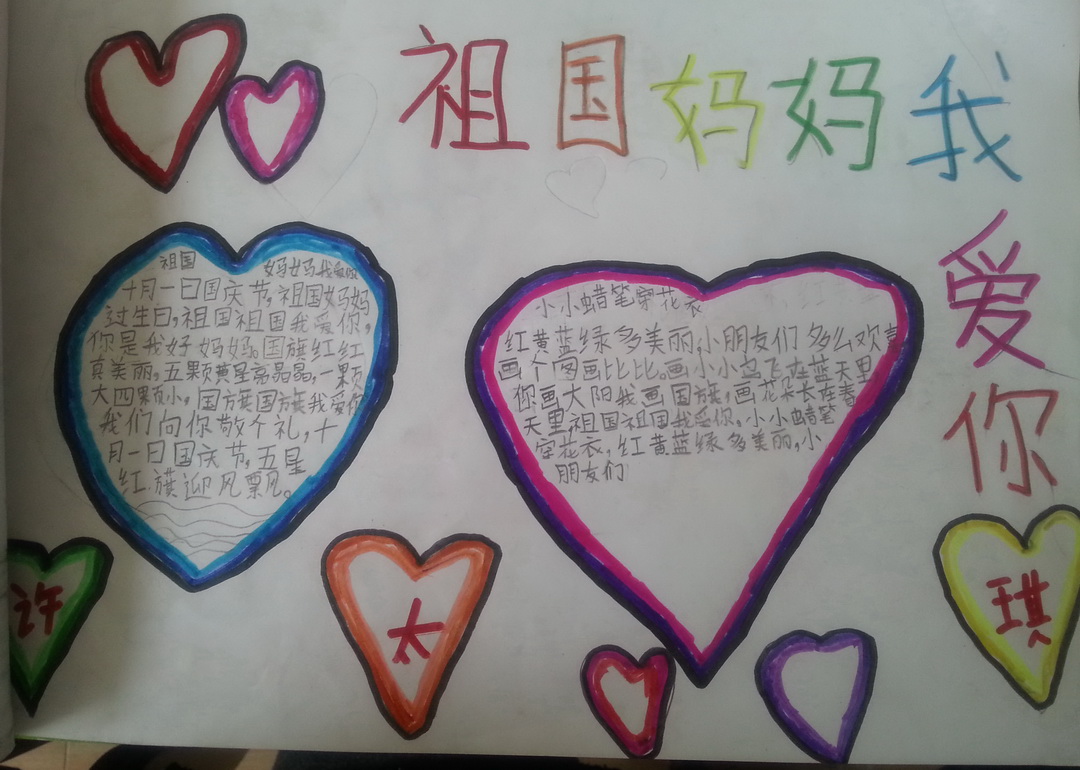 祖国妈妈我爱你
祖国 妈妈我爱你
十月一日国庆节,祖国妈妈
过生日,祖国祖国我爱你,
你是我好妈妈。国旗红红
真美丽,五颗黄星亮晶晶,一颗
大四颗小,国旗国旗我爱你
我们向你敬个礼,十
月一日国庆节,五星
红旗迎风飘。
小小蜡笔穿花衣
红黄蓝绿多美丽,小朋友们多么欢喜
画个图画比比。画小小鸟飞在蓝天里
你画太阳我画国旗,画花朵长在春
天里祖国祖国我爱你。小小蜡笔
穿花衣,红黄蓝绿多美丽,小
朋友们
许
太
琪